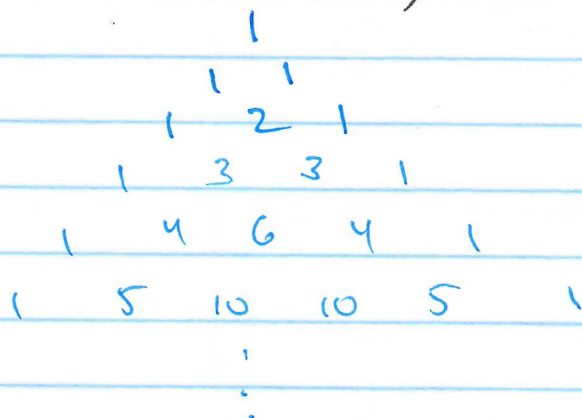 1
1 1
1 2 1
1 3 3 1
1 4 6 4 1
1 5 10 10 5 1
⋮